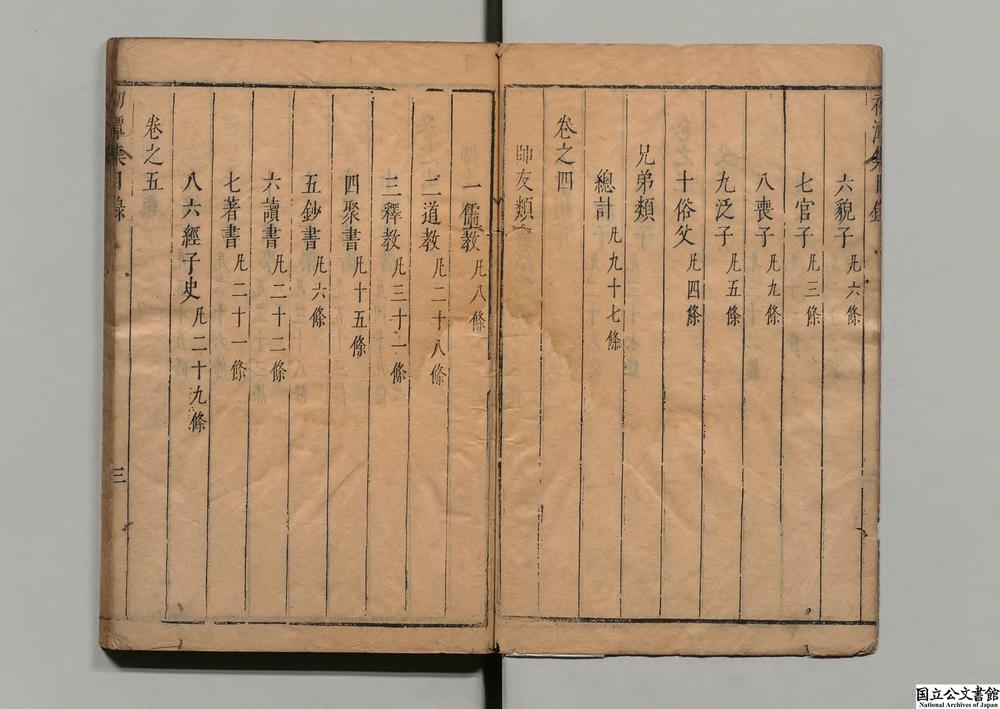 六貌子凡六條
七官子凡三條
八喪子凡九條
九泛子凡五條
十俗父凡四條
兄弟類子
總計凡九十七條
卷之四
師友類
一儒教凡八條
二道教凡二十八條
三釋教凡三十一條
四聚書凡十五條
五鈔書凡六條
六讀書凡二十二條
七著書凡二十一條
八六經子史凡二十九條
卷之五
初潭集目錄
三
国立公文書館
National Archives of Japan